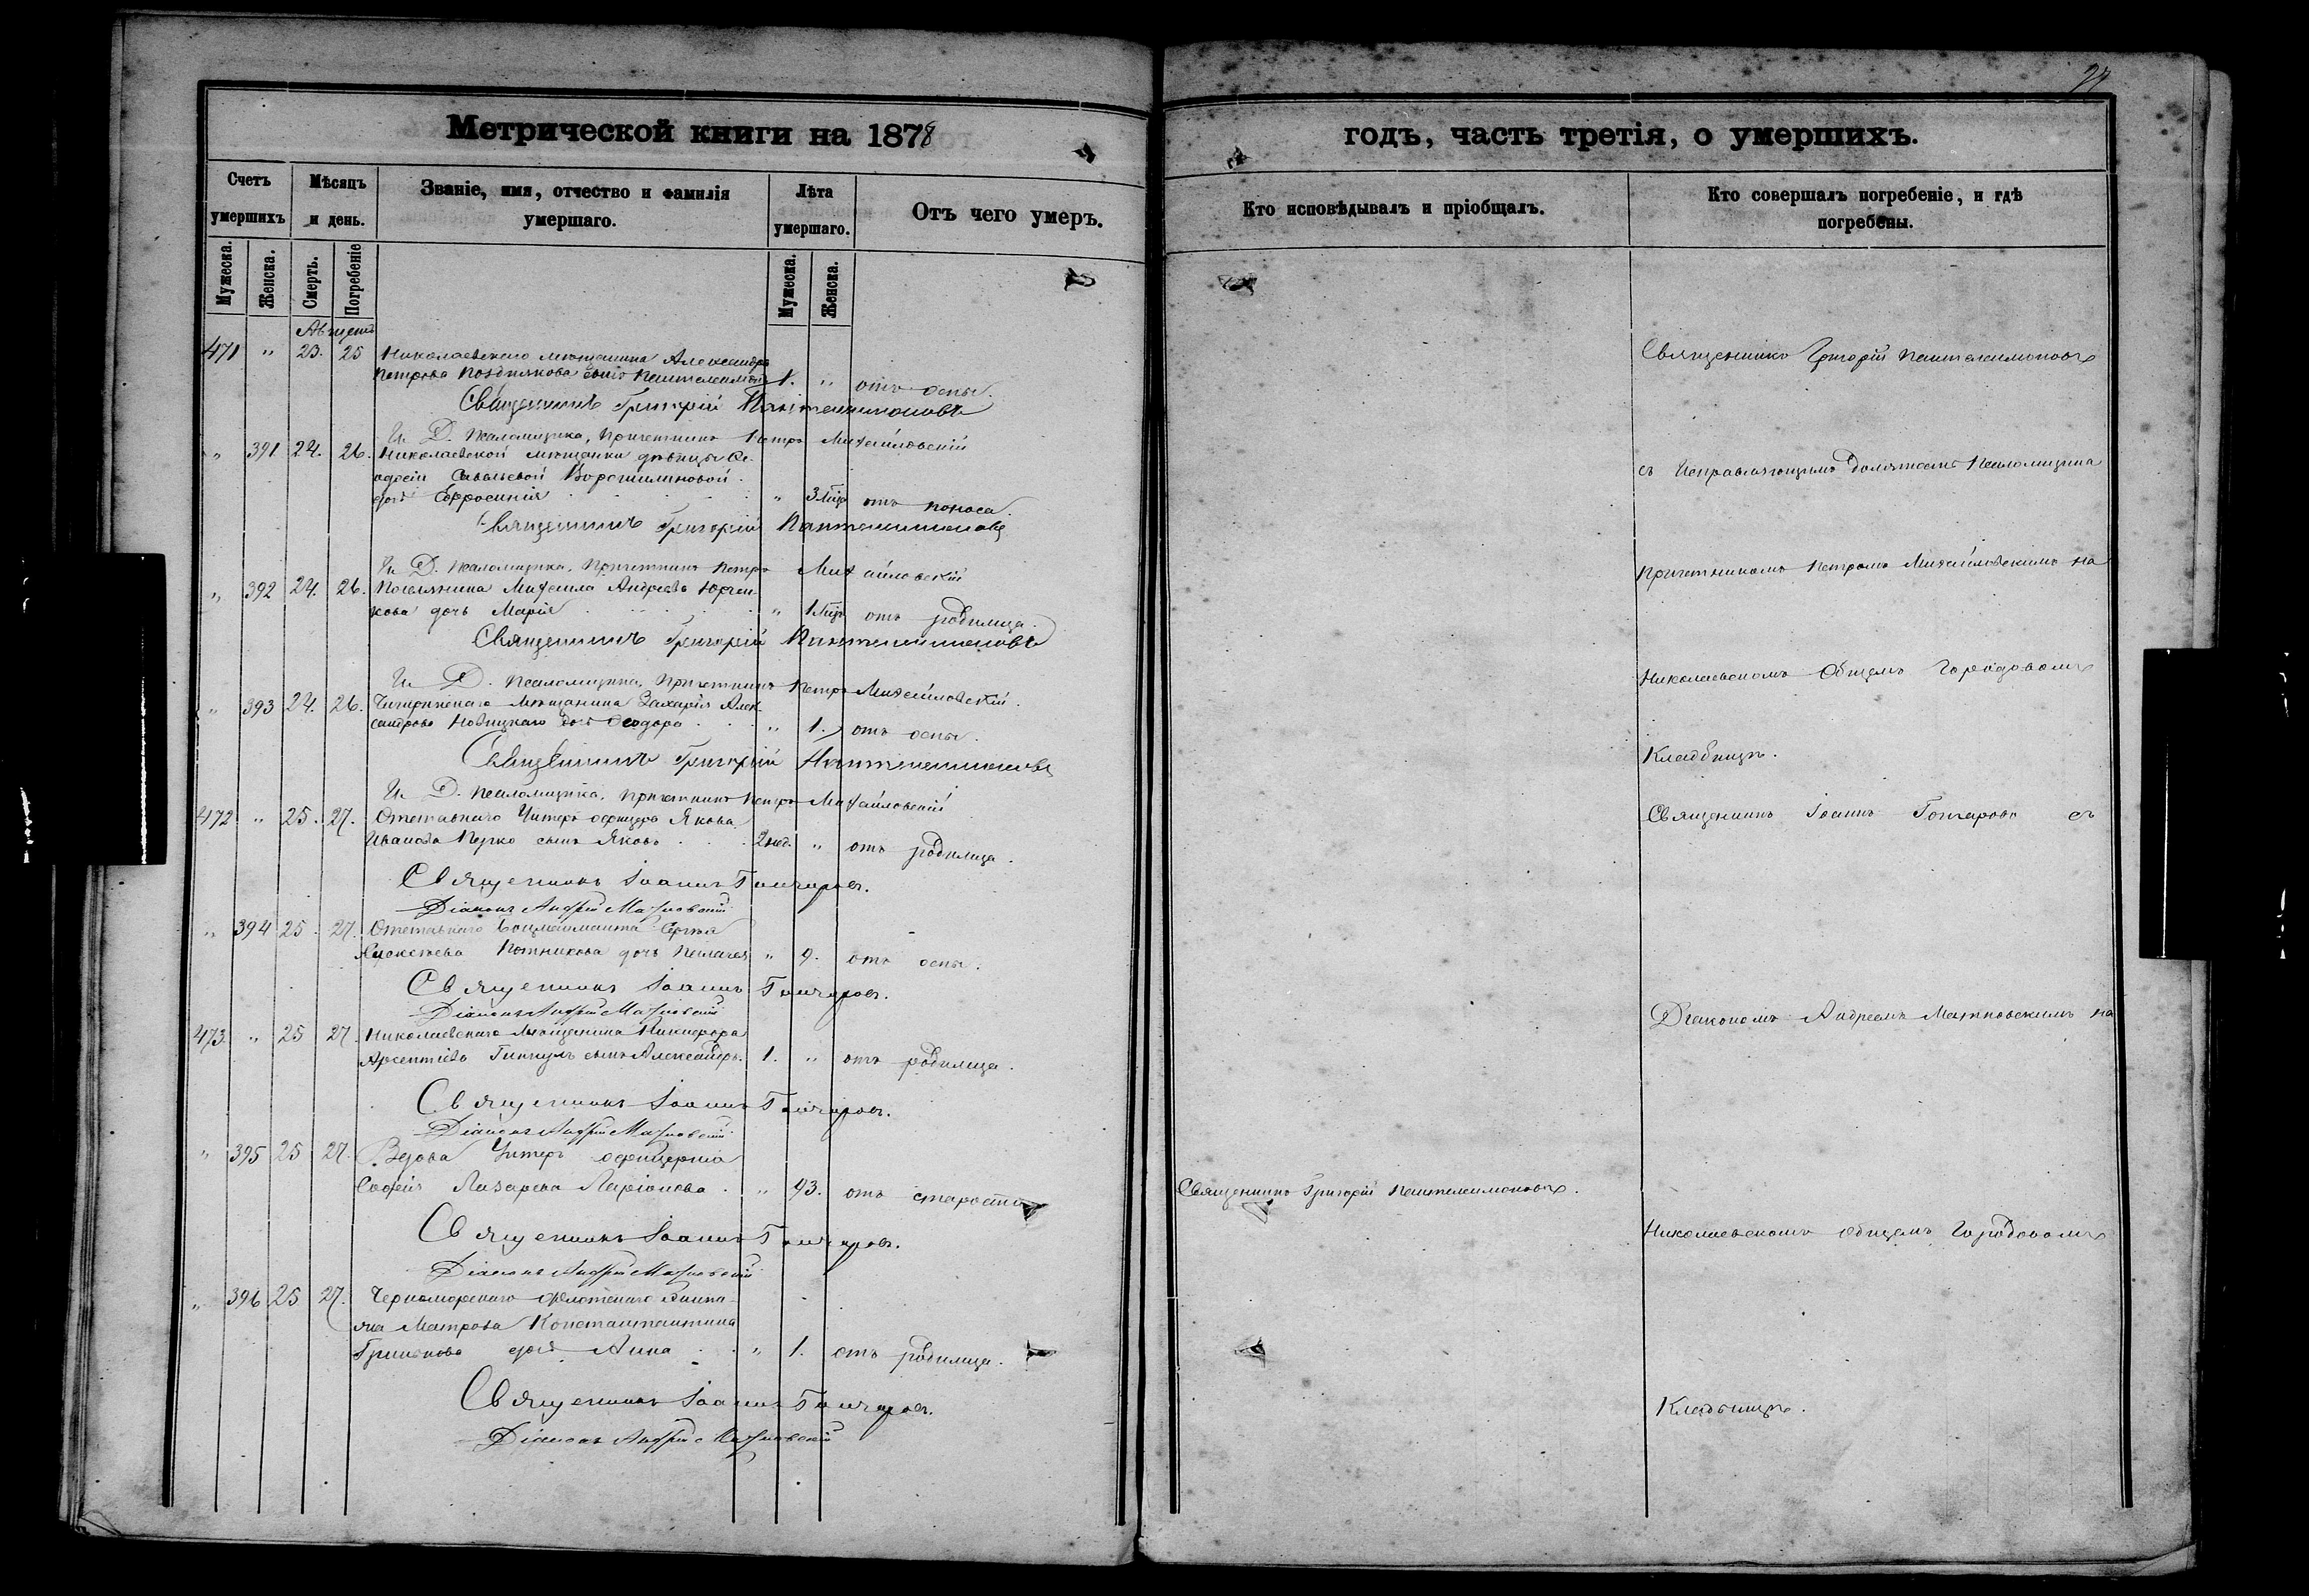 Метрической книги на 1878
Счетъ умершихъ
Мѣсяцъ и день.
Званіе, имя, отчество и фамилія умершаго.
Лѣта умершаго.
Отъ чего умеръ.
Мужеска.
Женска.
Смерть.
Погребеніе
Мужеска.
Женска.
Августъ
471 " 23. 25 Николаевскаго мѣщанина Александра
Петрова Позднякова сынъ Пантелеимонъ 1. " отъ оспы.
Священникъ Григорій Пантелеимоновъ
И. Д. Псаломщика, Причетникъ Петръ Михайловскій
" 391 24. 26. Николаевской мѣщанки дѣвицы
Савельевой
дочь Евфросинія " 3 мѣс отъ поноса.
Священникъ Григорій Пантелеимоновъ
И. Д. Псаломщика, Причетникъ Петръ Михайловскій
" 392 24. 26. Поселянина Михаила Андреева Юрчен-
кова дочь Марія " 1 мѣс отъ родимца.
Священникъ Григорій Пантелеимоновъ
И. Д. Псаломщика, Причетникъ Петръ Михайловскій.
" 393 24. 26. Чигиринскаго мѣщанина Захарія Алек-
сандрова Новицкаго дочь Ѳеодора " 1. отъ оспы.
Священникъ Григорій Пантелеимоновъ
И. Д. Псаломщика, Причетникъ Петръ Михайловскій
472 " 25. 27. Отставнаго Унтеръ офицера Якова
Иванова сынъ Яковъ 2 нед. " отъ родимца.
Священникъ Іоаннъ Гончаровъ.
Діаконъ Андрей
" 394 25. 27. Отставнаго Боцманмата Сергѣя
Алексѣева дочь Пелагея " 9. отъ оспы.
Священникъ Іоаннъ Гончаровъ.
Діаконъ Андрей
473 " 25 27. Николаевскаго мѣщанина Никифора
Арсентіева сынъ Александръ. 1. " отъ родимца.
Священникъ Іоаннъ Гончаровъ.
Діаконъ Андрей
" 395 25 27. Вдова Унтеръ офицерша
Софія Лазарева Ларіонова " 93. отъ старости
Священникъ Іоаннъ Гончаровъ.
Діаконъ Андрей
" 396 25 27. Черноморскаго флотскаго экипа-
жа Матроса Константина
дочь Анна " 1. отъ родимца.
Священникъ Іоаннъ Гончаровъ.
Діаконъ Андрей
годъ, часть третія, о умершихъ.
Кто исповѣдывалъ и пріобщалъ.
Кто совершалъ погребеніе, и гдѣ погребены.
Священникъ Григорій Пантелеимоновъ
съ Исправляющимъ Должность Псаломщика
Причетникомъ Петромъ Михайловскимъ на
Николаевскомъ Общемъ Городовомъ
Кладбищѣ.
Священникъ Іоаннъ Гончаровъ съ
Діакономъ Андреемъ на
Священникъ Григорій Пантелеимоновъ.
Николаевскомъ общемъ Городовомъ
Кладбищѣ.